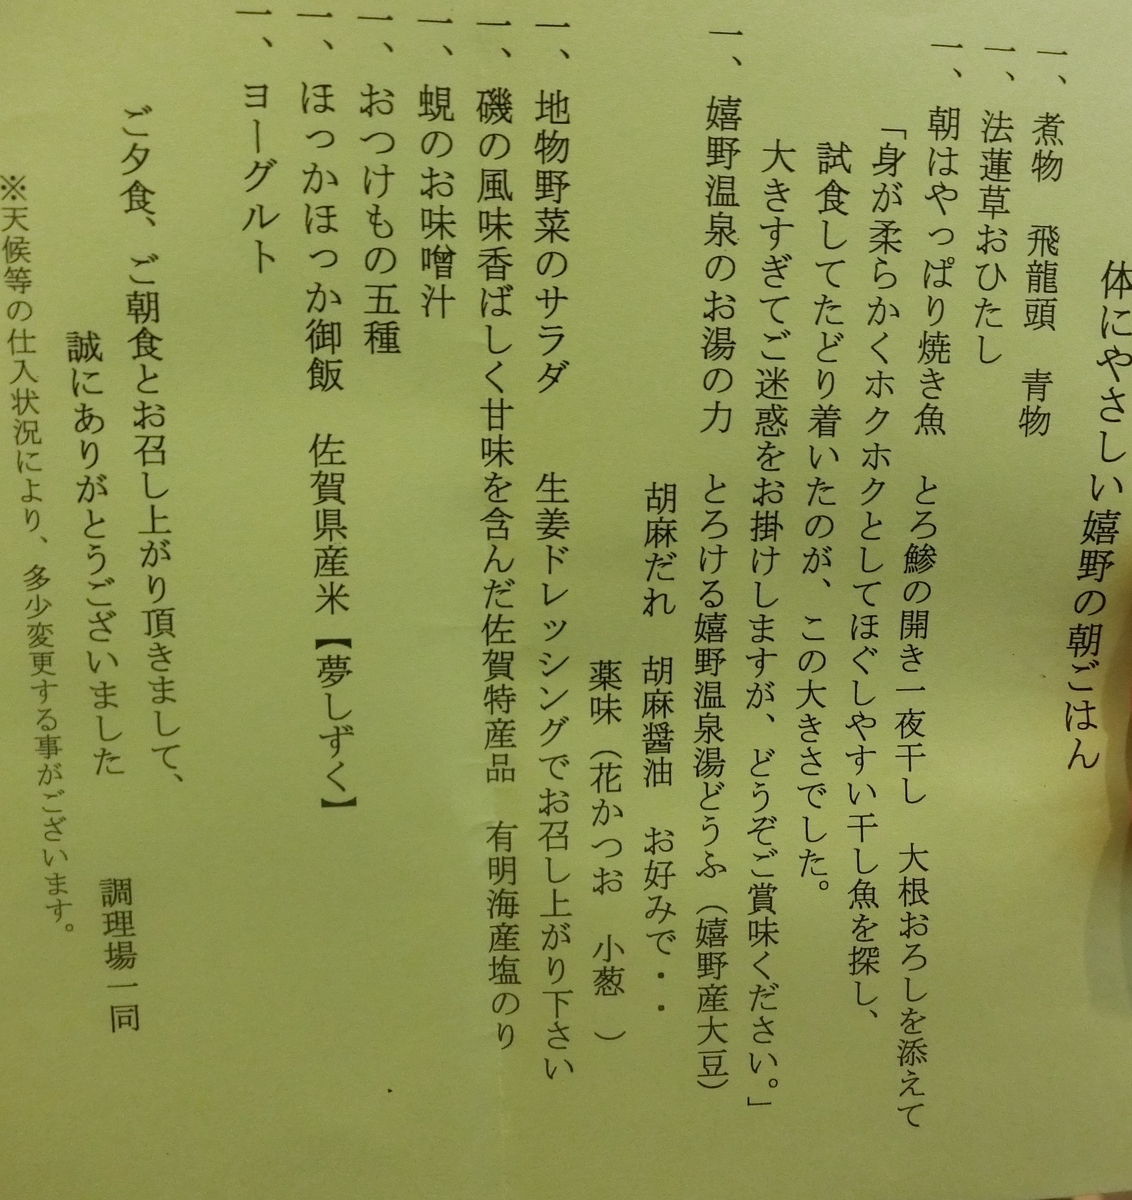 体にやさしい嬉野の朝ごはん
一、煮物　飛龍頭　青物
一、法蓮草おひたし
一、朝はやっぱり焼き魚　とろ鯵の開き一夜干し　大根おろしを添えて
「身が柔らかくホクホクとしてほぐしやすい干し魚を探し、
試食してたどり着いたのが、この大きさでした。
大きすぎてご迷惑をお掛けしますが、どうぞご賞味ください。」
一、嬉野温泉のお湯の力　とろける嬉野温泉湯どうふ（嬉野産大豆）
胡麻だれ　胡麻醤油　お好みで・・
薬味（花かつお　小葱　）
一、地物野菜のサラダ　生姜ドレッシングでお召し上がり下さい
一、磯の風味香ばしく甘味を含んだ佐賀特産品　有明海産塩のり
一、蜆のお味噌汁
一、おつけもの五種
一、ほっかほっか御飯　佐賀県産米【夢しずく】
一、ヨーグルト
ご夕食、ご朝食とお召し上がり頂きまして、
誠にありがとうございました　調理場一同
※天候等の仕入状況により、多少変更する事がございます。